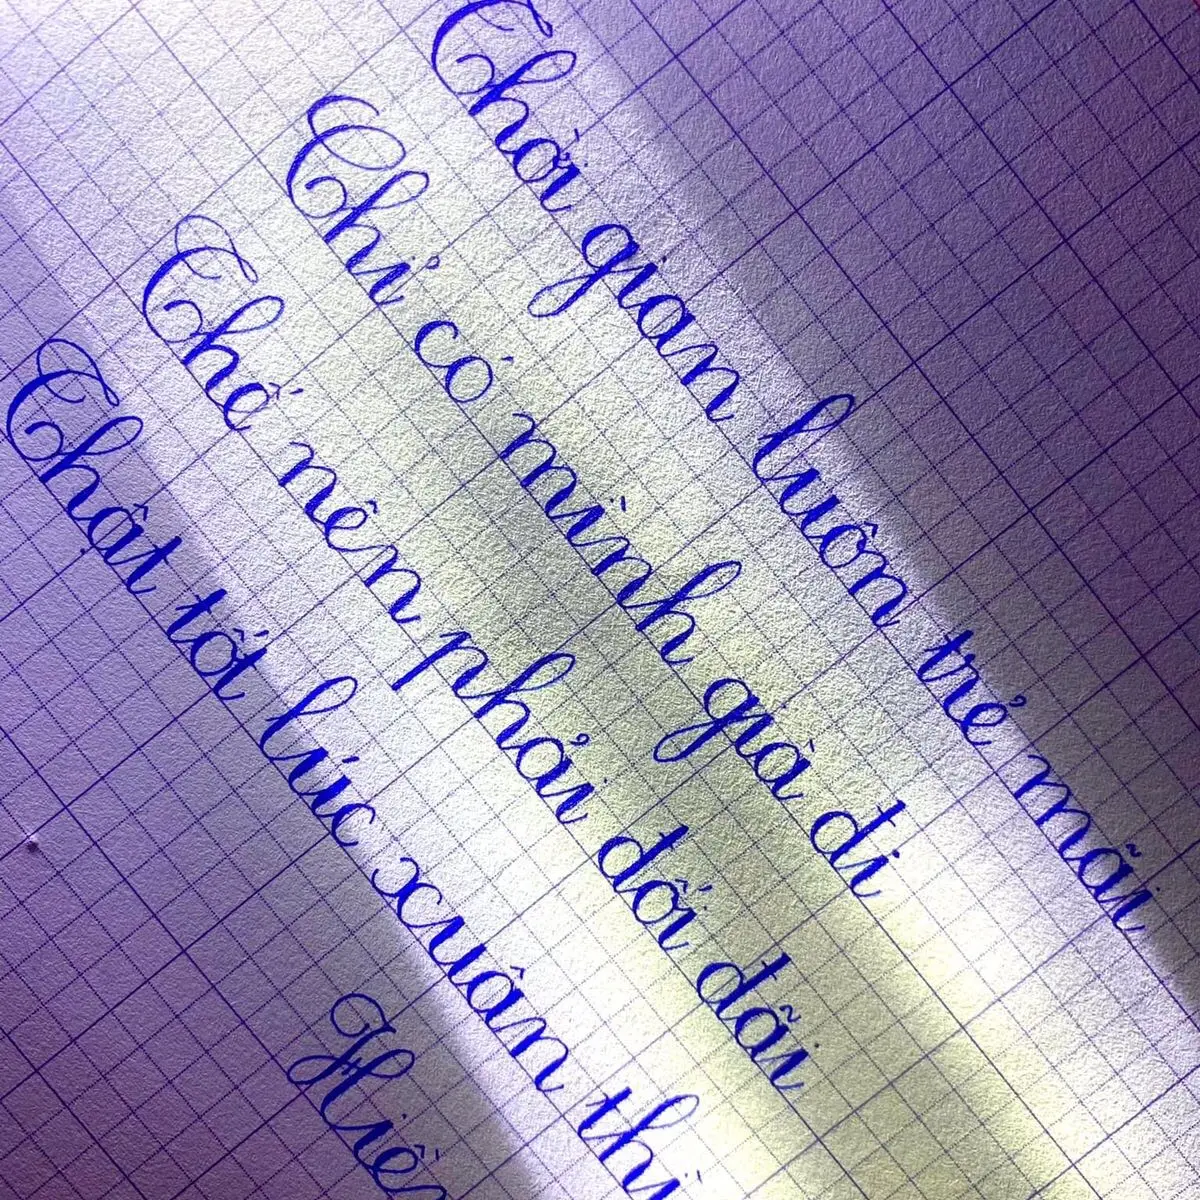 Thời gian luôn trẻ mãi
Chỉ có mình già đi
Thế nên phải đối đãi
Thật tốt lúc xuân thì